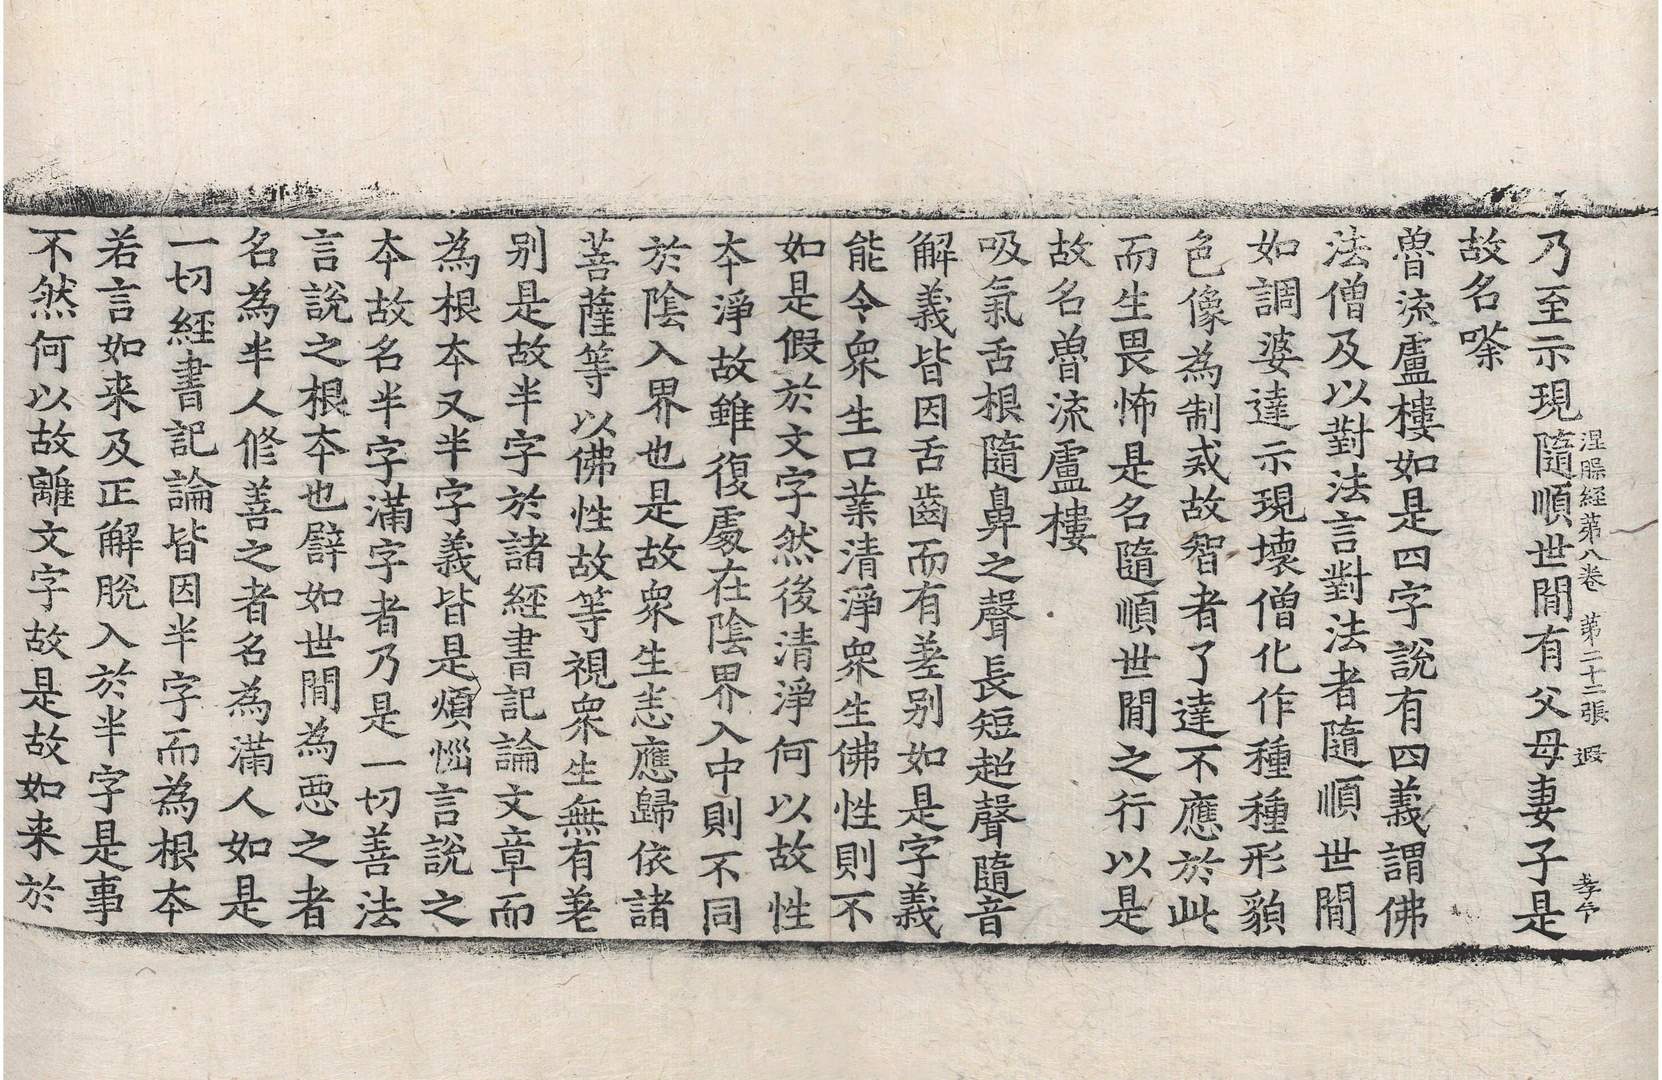 涅槃経第八卷 第二十二張 遐 孝午
乃至示現隨順世間有父母妻子是
故名嗏
魯流盧樓如是四字說有四義謂佛
法僧及以對法言對法者隨順世間
如調婆達示現壞僧化作種種形貌
色像為制戒故智者了達不應於此
而生畏怖是名隨順世間之行以是
故名魯流盧樓
吸氣舌根隨鼻之聲長短超聲隨音
解義皆因舌齒而有差别如是字義
能令衆生口業清淨衆生佛性則不
如是假於文字然後清淨何以故性
本淨故雖復處在陰界入中則不同
於陰入界也是故衆生悉應歸依諸
菩薩等以佛性故等視衆生無有差
别是故半字於諸經書記論文章而
為根本又半字義皆是煩惱言說之
本故名半字滿字者乃是一切善法
言說之根本也譬如世間為惡之者
名為半人修善之者名為滿人如是
一切經書記論皆因半字而為根本
若言如来及正解脫入於半字是事
不然何以故離文字故是故如来於